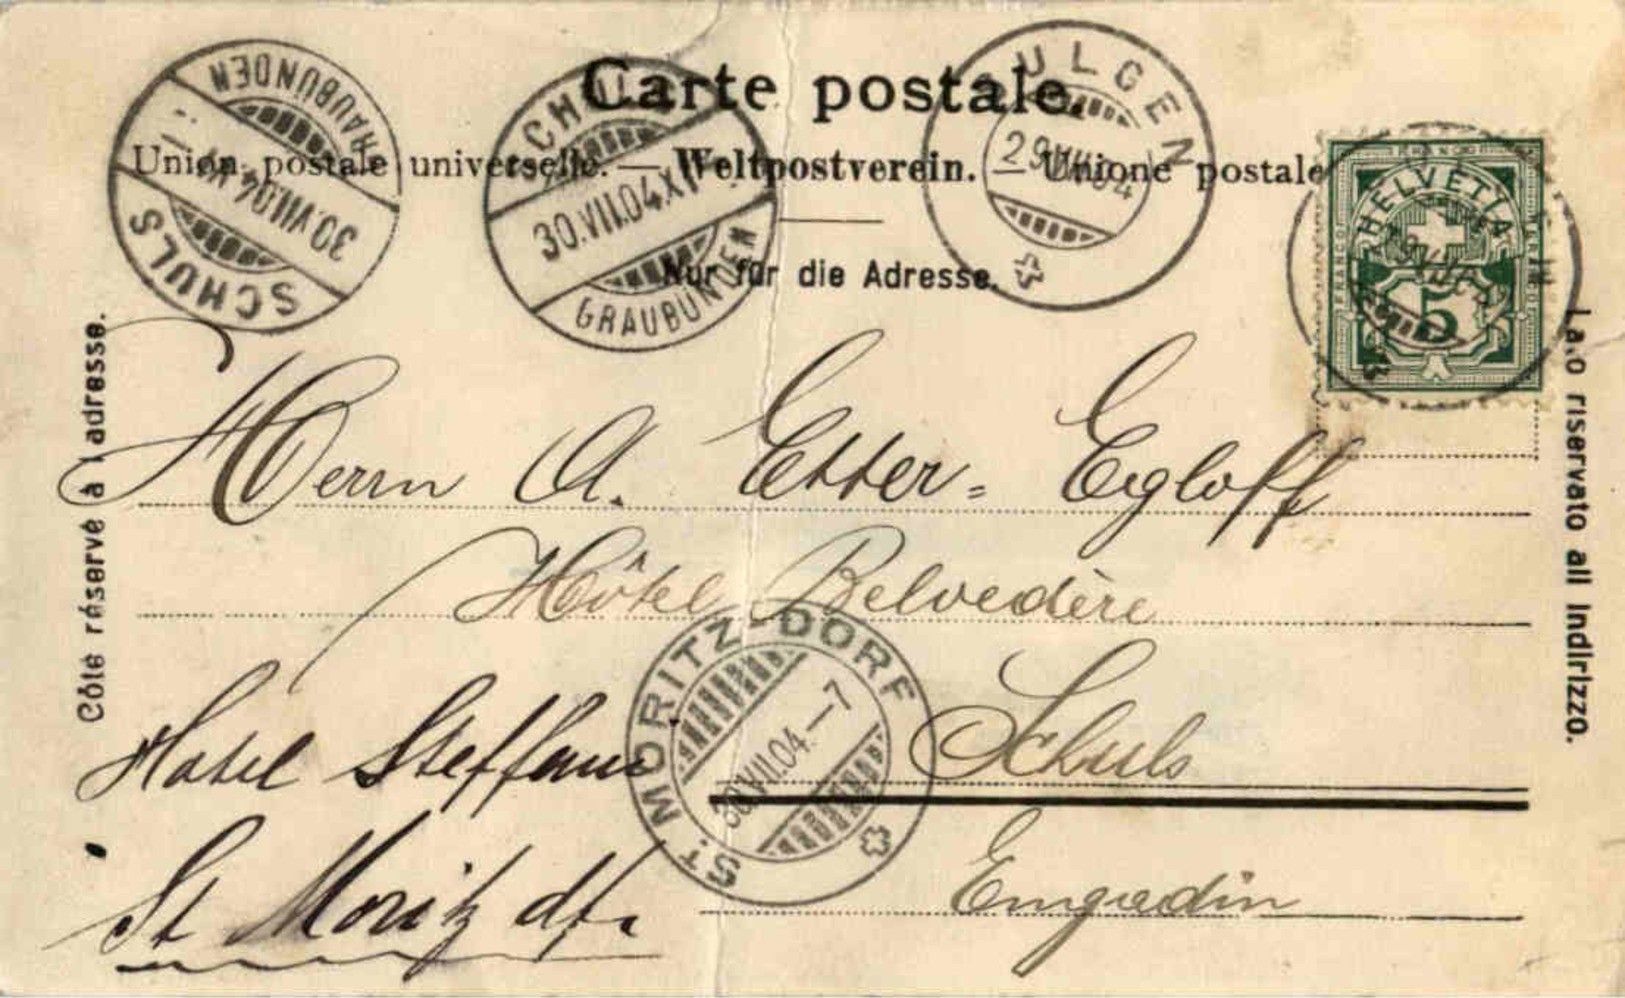 Carte postale.
Union postale universelle. — Weltpostverein. — Unione postale
Nur für die Adresse.
Côté réservé à l adresse.
Lato riservato all Indirizzo.
SCHULS
30.VII.04.XI
GRAUBÜNDEN
SCHULS
30.VII.04.XI
GRAUBÜNDEN
SULGEN
29.VII.04
FRANCO
HELVETIA
5
Herrn A. Etter-Egloff
Hôtel Belvedère
Schuls
Engadin
Hotel Steffani
St Moritz df.
ST. MORITZ-DORF
30.VII.04.–7